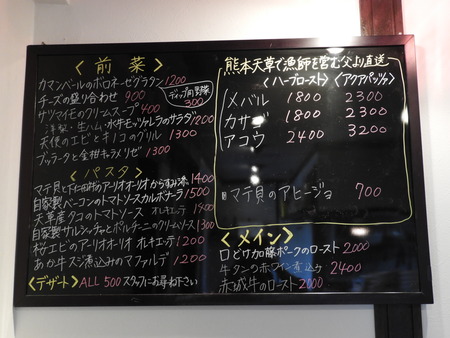 〈前菜〉
カマンベールのボロネーゼグラタン 1200
チーズの盛り合わせ 900
ディップ用野菜 300
サツマイモのクリームスープ 400
洋梨と生ハム・水牛モッツァレラのサラダ 1200
天使のエビとキノコのグリル 1300
ブッラータと金柑キャラメリゼ 1300
〈パスタ〉
マテ貝と下仁田ネギのアーリオオーリオ からすみ添え 1400
自家製ベーコンのトマトソースカルボナーラ 1500
天草産タコのトマトソース オレキエッテ 1400
自家製サルシッチャとポルチーニのクリームソース 1300
桜エビのアーリオオーリオ オレキエッテ 1200
あか牛スジ煮込みのマファルデ 1200
〈デザート〉 ALL 500 スタッフにお尋ね下さい
熊本天草で漁師を営む父より直送
〈ハーブロースト〉 〈アクアパッツァ〉
メバル 1800 2300
カサゴ 1800 2300
アコウ 2400 3200
マテ貝のアヒージョ 700
〈メイン〉
口どけ加藤ポークのロースト 2000
牛タンの赤ワイン煮込み 2400
赤城牛のロースト 2000